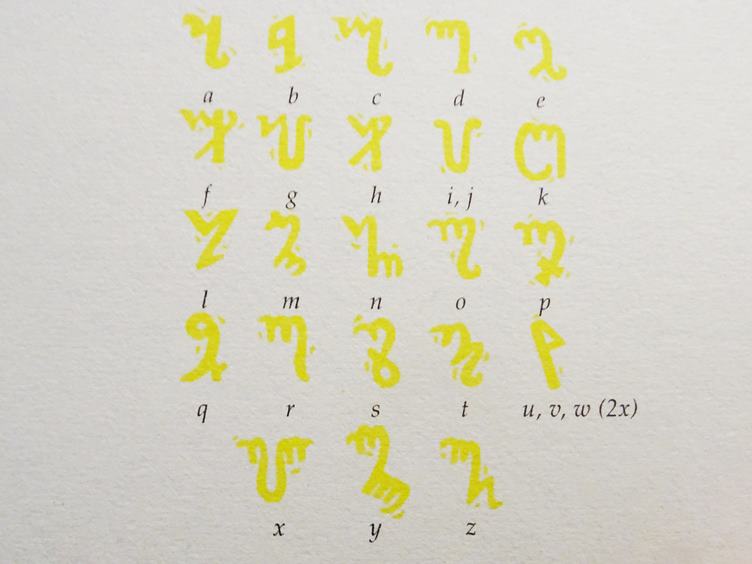 a b c d e
f g h i, j k
l m n o p
q r s t u, v, w (2x)
x y z